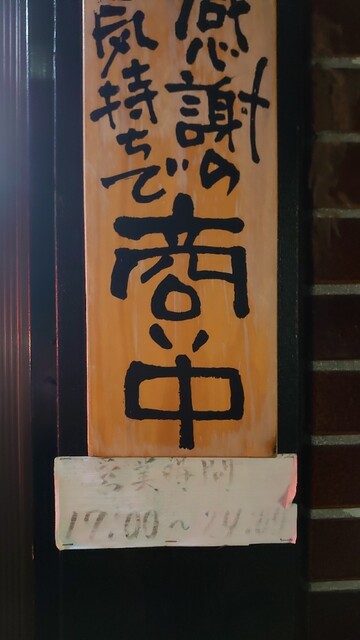 感謝の
気持ちで
商い中
営業時間
17:00～24:00